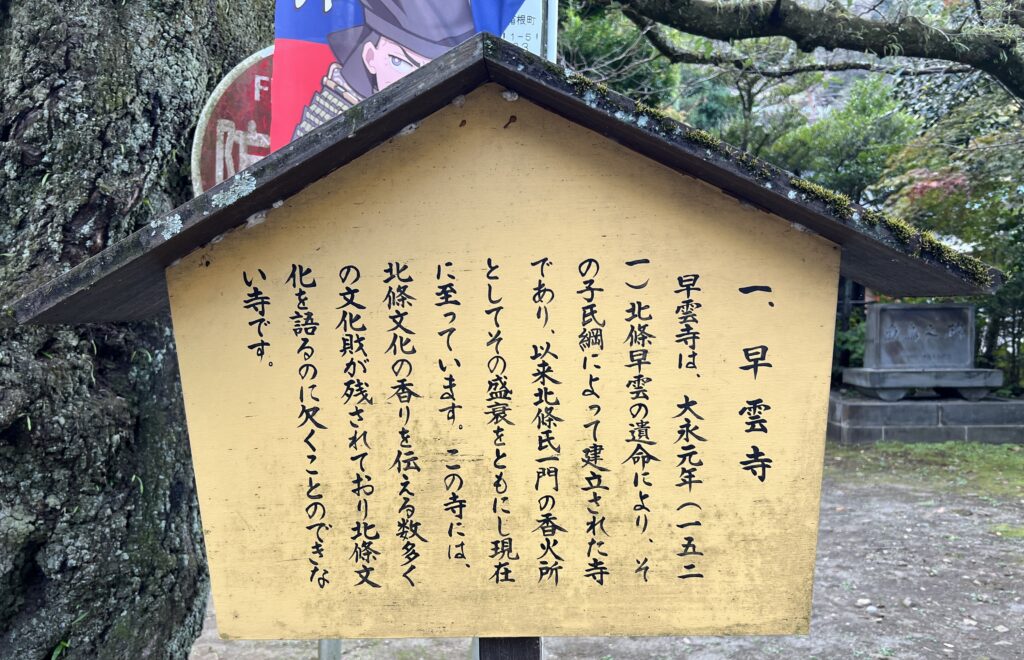 一、早雲寺
早雲寺は、大永元年(一五二
一)北條早雲の遺命により、そ
の子氏綱によって建立された寺
であり、以来北條氏一門の香火所
としてその盛衰をともにし現在
に至っています。この寺には、
北條文化の香りを伝える数多く
の文化財が残されており北條文
化を語るのに欠くことのできな
い寺です。
箱根町